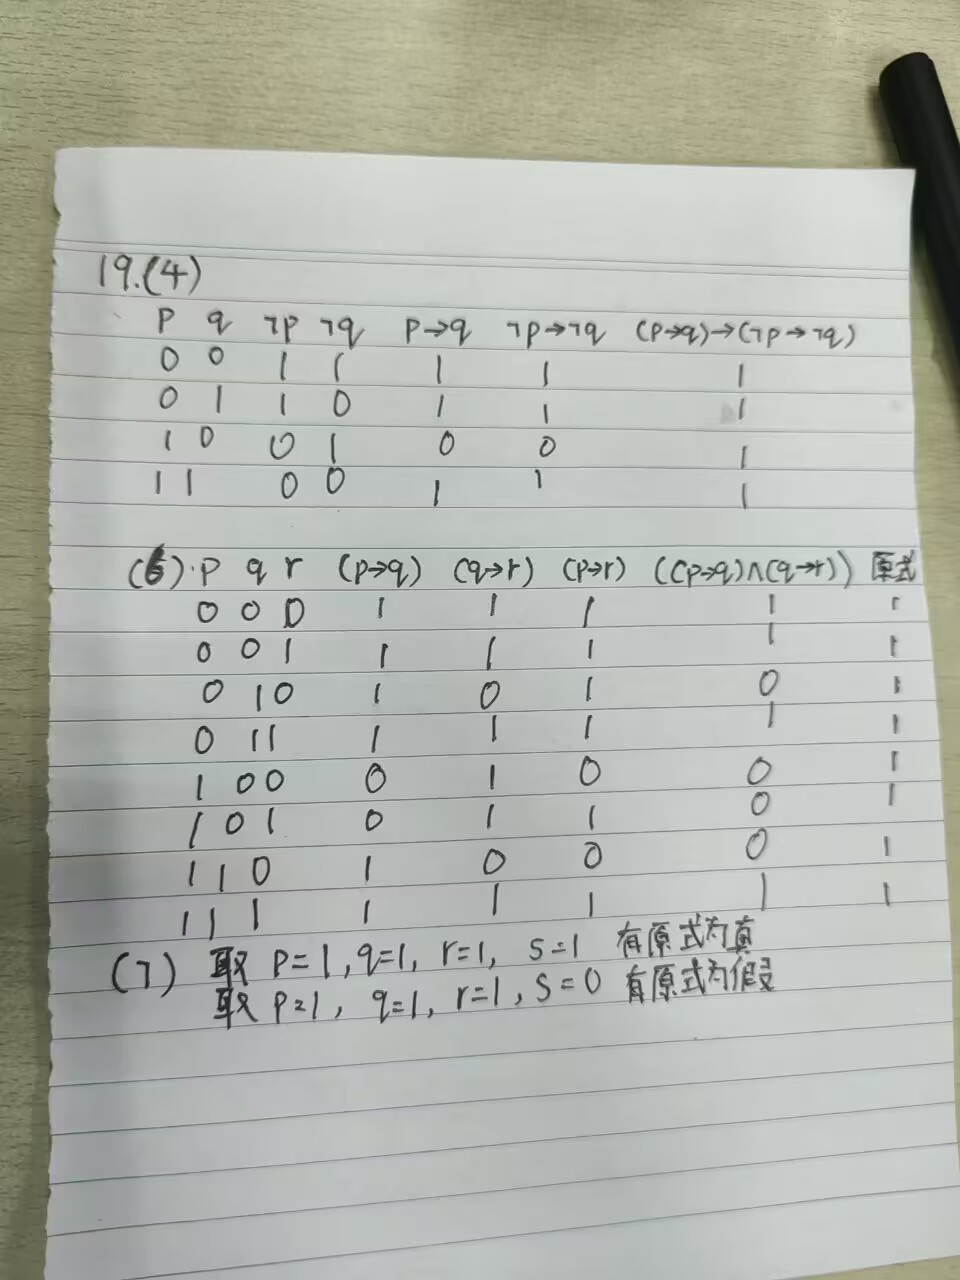 19.(4)
p q ¬p ¬q p→q ¬p→¬q (p→q)→(¬p→¬q)
0 0 1 1 1 1 1
0 1 1 0 1 1 1
1 0 0 1 0 0 1
1 1 0 0 1 1 1
(6).p q r (p→q) (q→r) (p→r) ((p→q)∧(q→r)) 原式
0 0 0 1 1 1 1 1
0 0 1 1 1 1 1 1
0 1 0 1 0 1 0 1
0 1 1 1 1 1 1 1
1 0 0 0 1 0 0 1
1 0 1 0 1 1 0 1
1 1 0 1 0 0 0 1
1 1 1 1 1 1 1 1
(7) 取 p=1,q=1, r=1, s=1 有原式为真
取 p=1, q=1, r=1, s=0 有原式为假